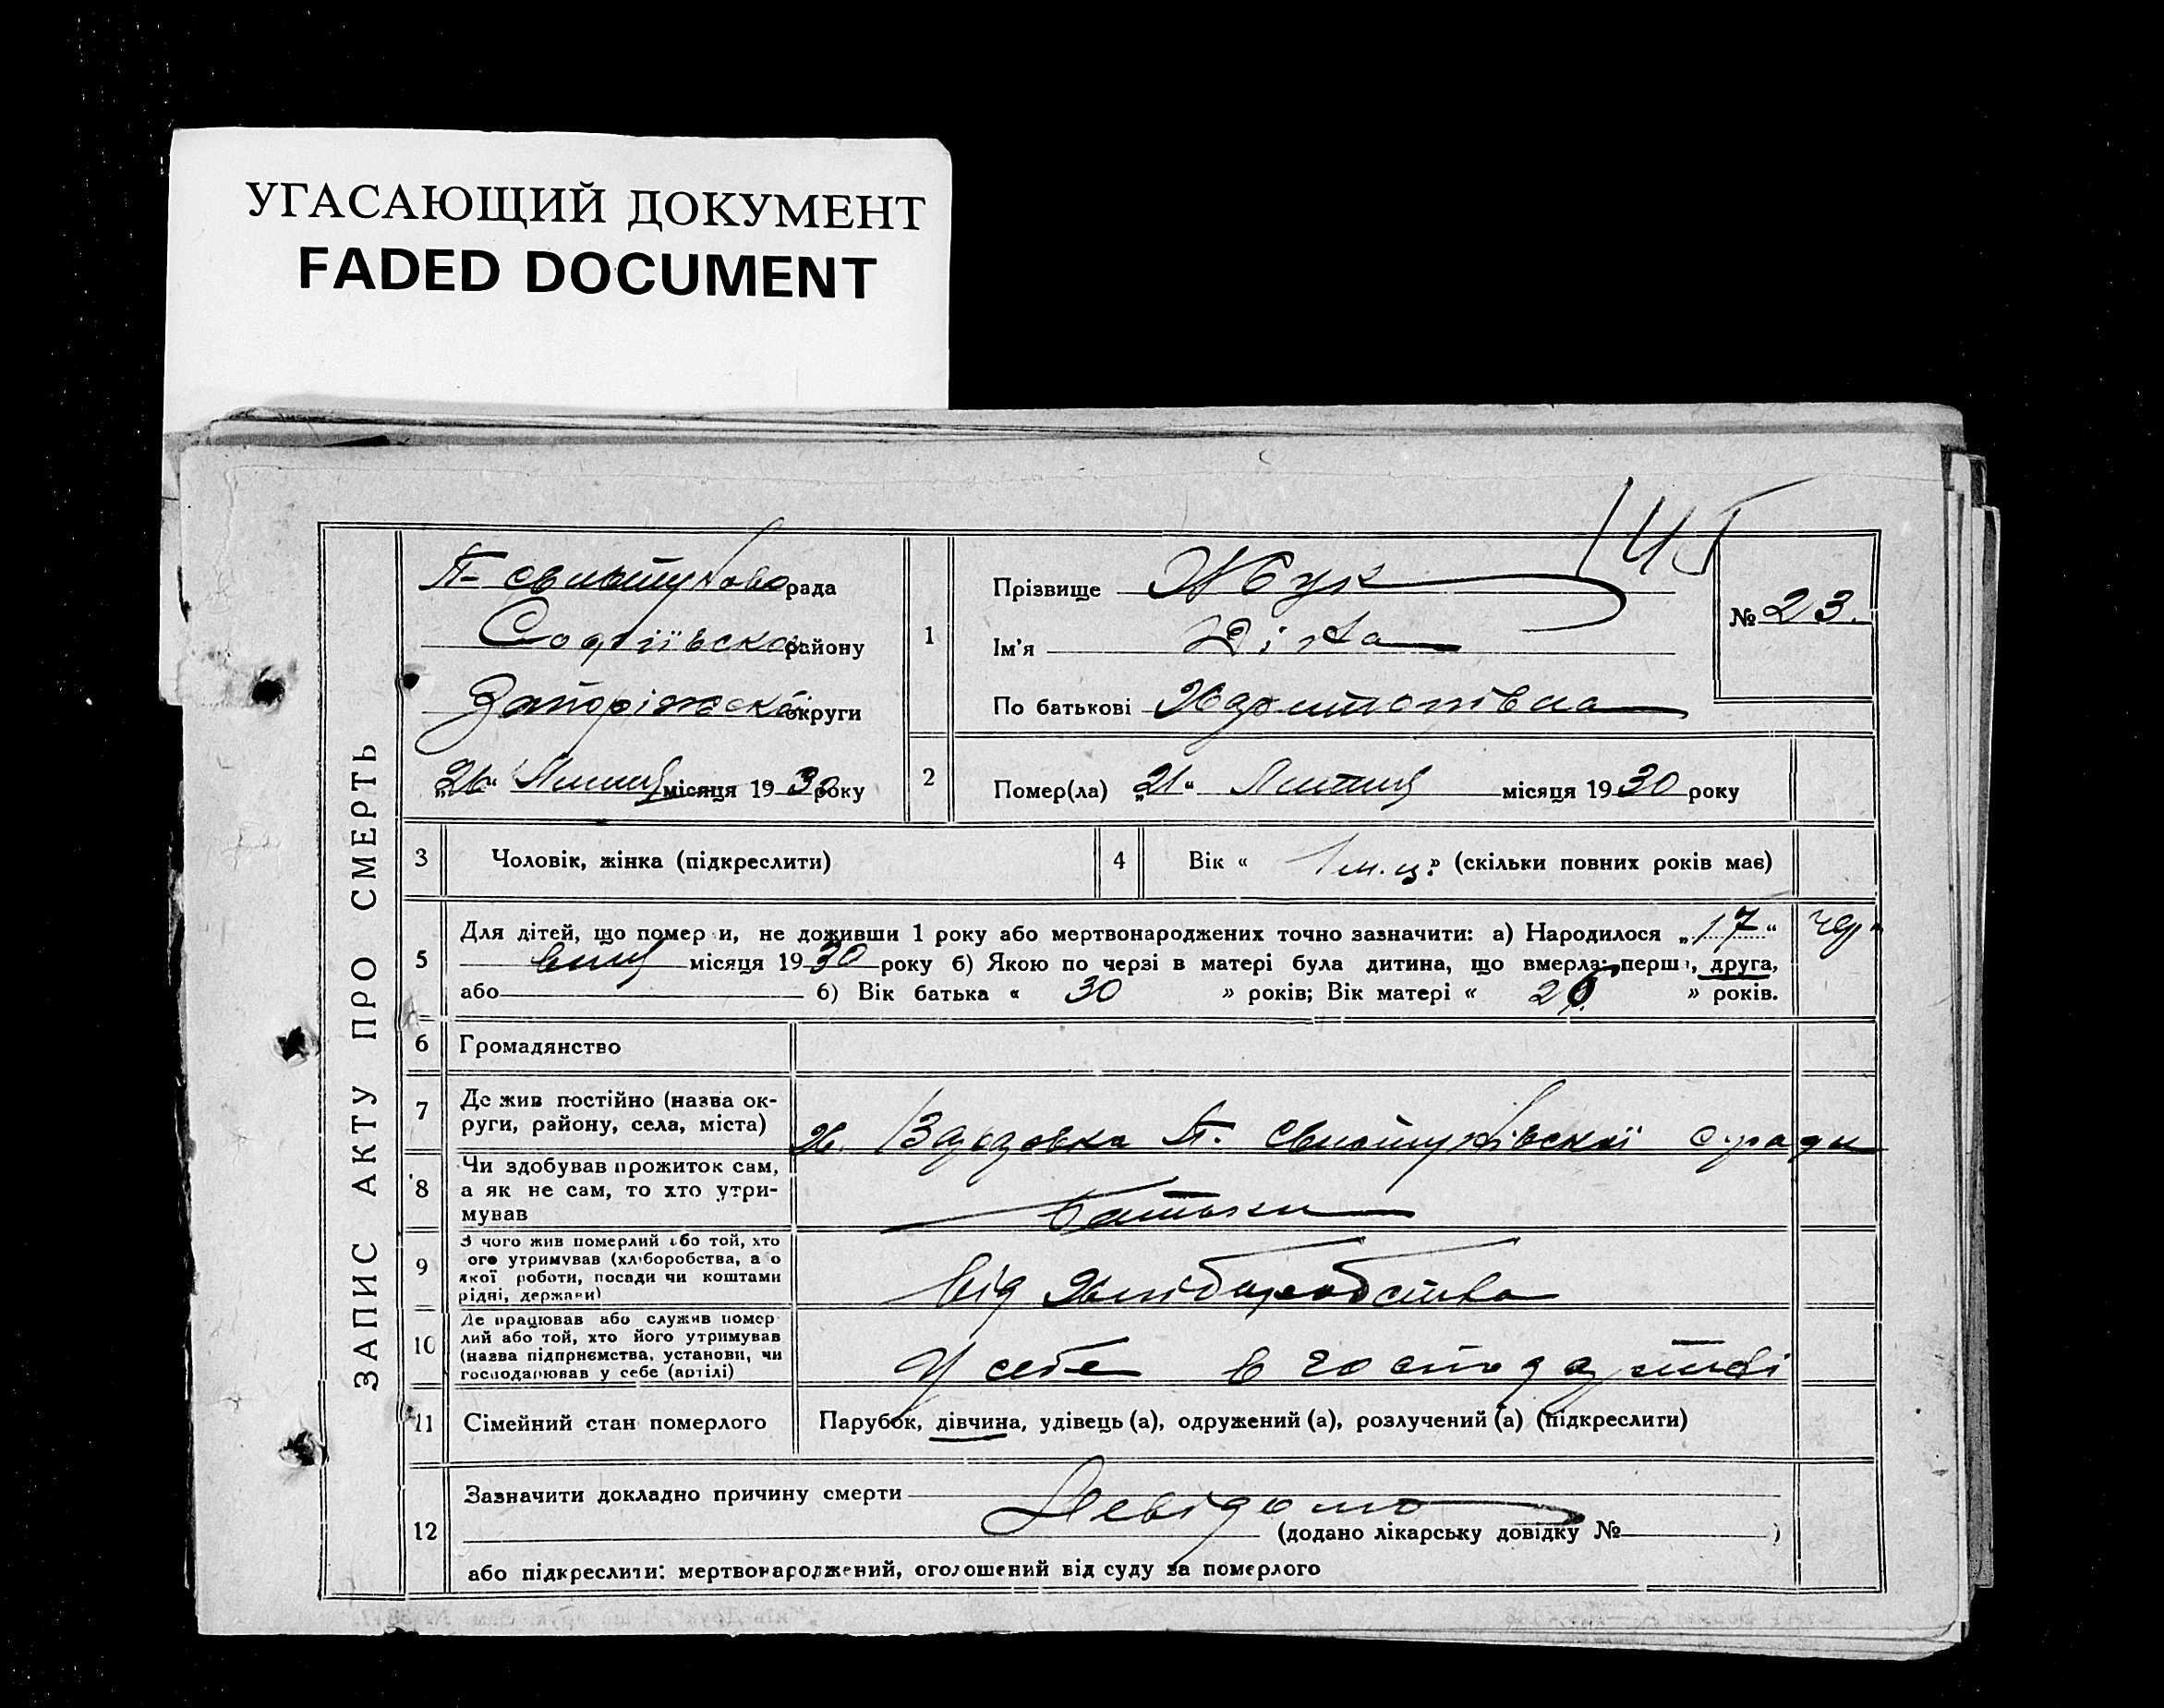 УГАСАЮЩИЙ ДОКУМЕНТ
FADED DOCUMENT
ЗАПИС АКТУ ПРО СМЕРТЬ
рада
Софіївска району
Запоріжска округи
місяця 1930 року
1
Прізвище Жук
Ім'я
По батькові Харитонівна
№ 23.
2
Помер(ла) „21“ місяця 1930 року
3
Чоловік, жінка (підкреслити)
4
Вік « 1 м.ц. » (скільки повних років має)
5
Для дітей, що помер и, не доживши 1 року або мертвонароджених точно зазначити: а) Народилося „17“ чер-
вця місяця 1930 року б) Якою по черзі в матері була дитина, що вмерла: перша, друга,
або б) Вік батька « 30 » років; Вік матері « 26 » років.
6
Громадянство
7
Де жив постійно (назва ок-
руги, району, села, міста)
Х. П. Свистунівскої с ради
8
Чи здобував прожиток сам,
а як не сам, то хто утри-
мував
Батьки
9
З чого жив померлий або той, хто
ого утримував (хліборобства, а о
якої роботи, посади чи коштами
рідні, держави)
від Хліборобства
10
Де працював або служив помер
лий або той, хто його утримував
(назва підприємства, установи, чи
господарював у себе (артілі)
У себе в господарстві
11
Сімейний стан померлого
Парубок, дівчина, удівець (а), одружений (а), розлучений (а) (підкреслити)
12
Зазначити докладно причину смерти Невідомо
(додано лікарську довідку № )
або підкреслити: мертвонароджений, оголошений від суду за померлого